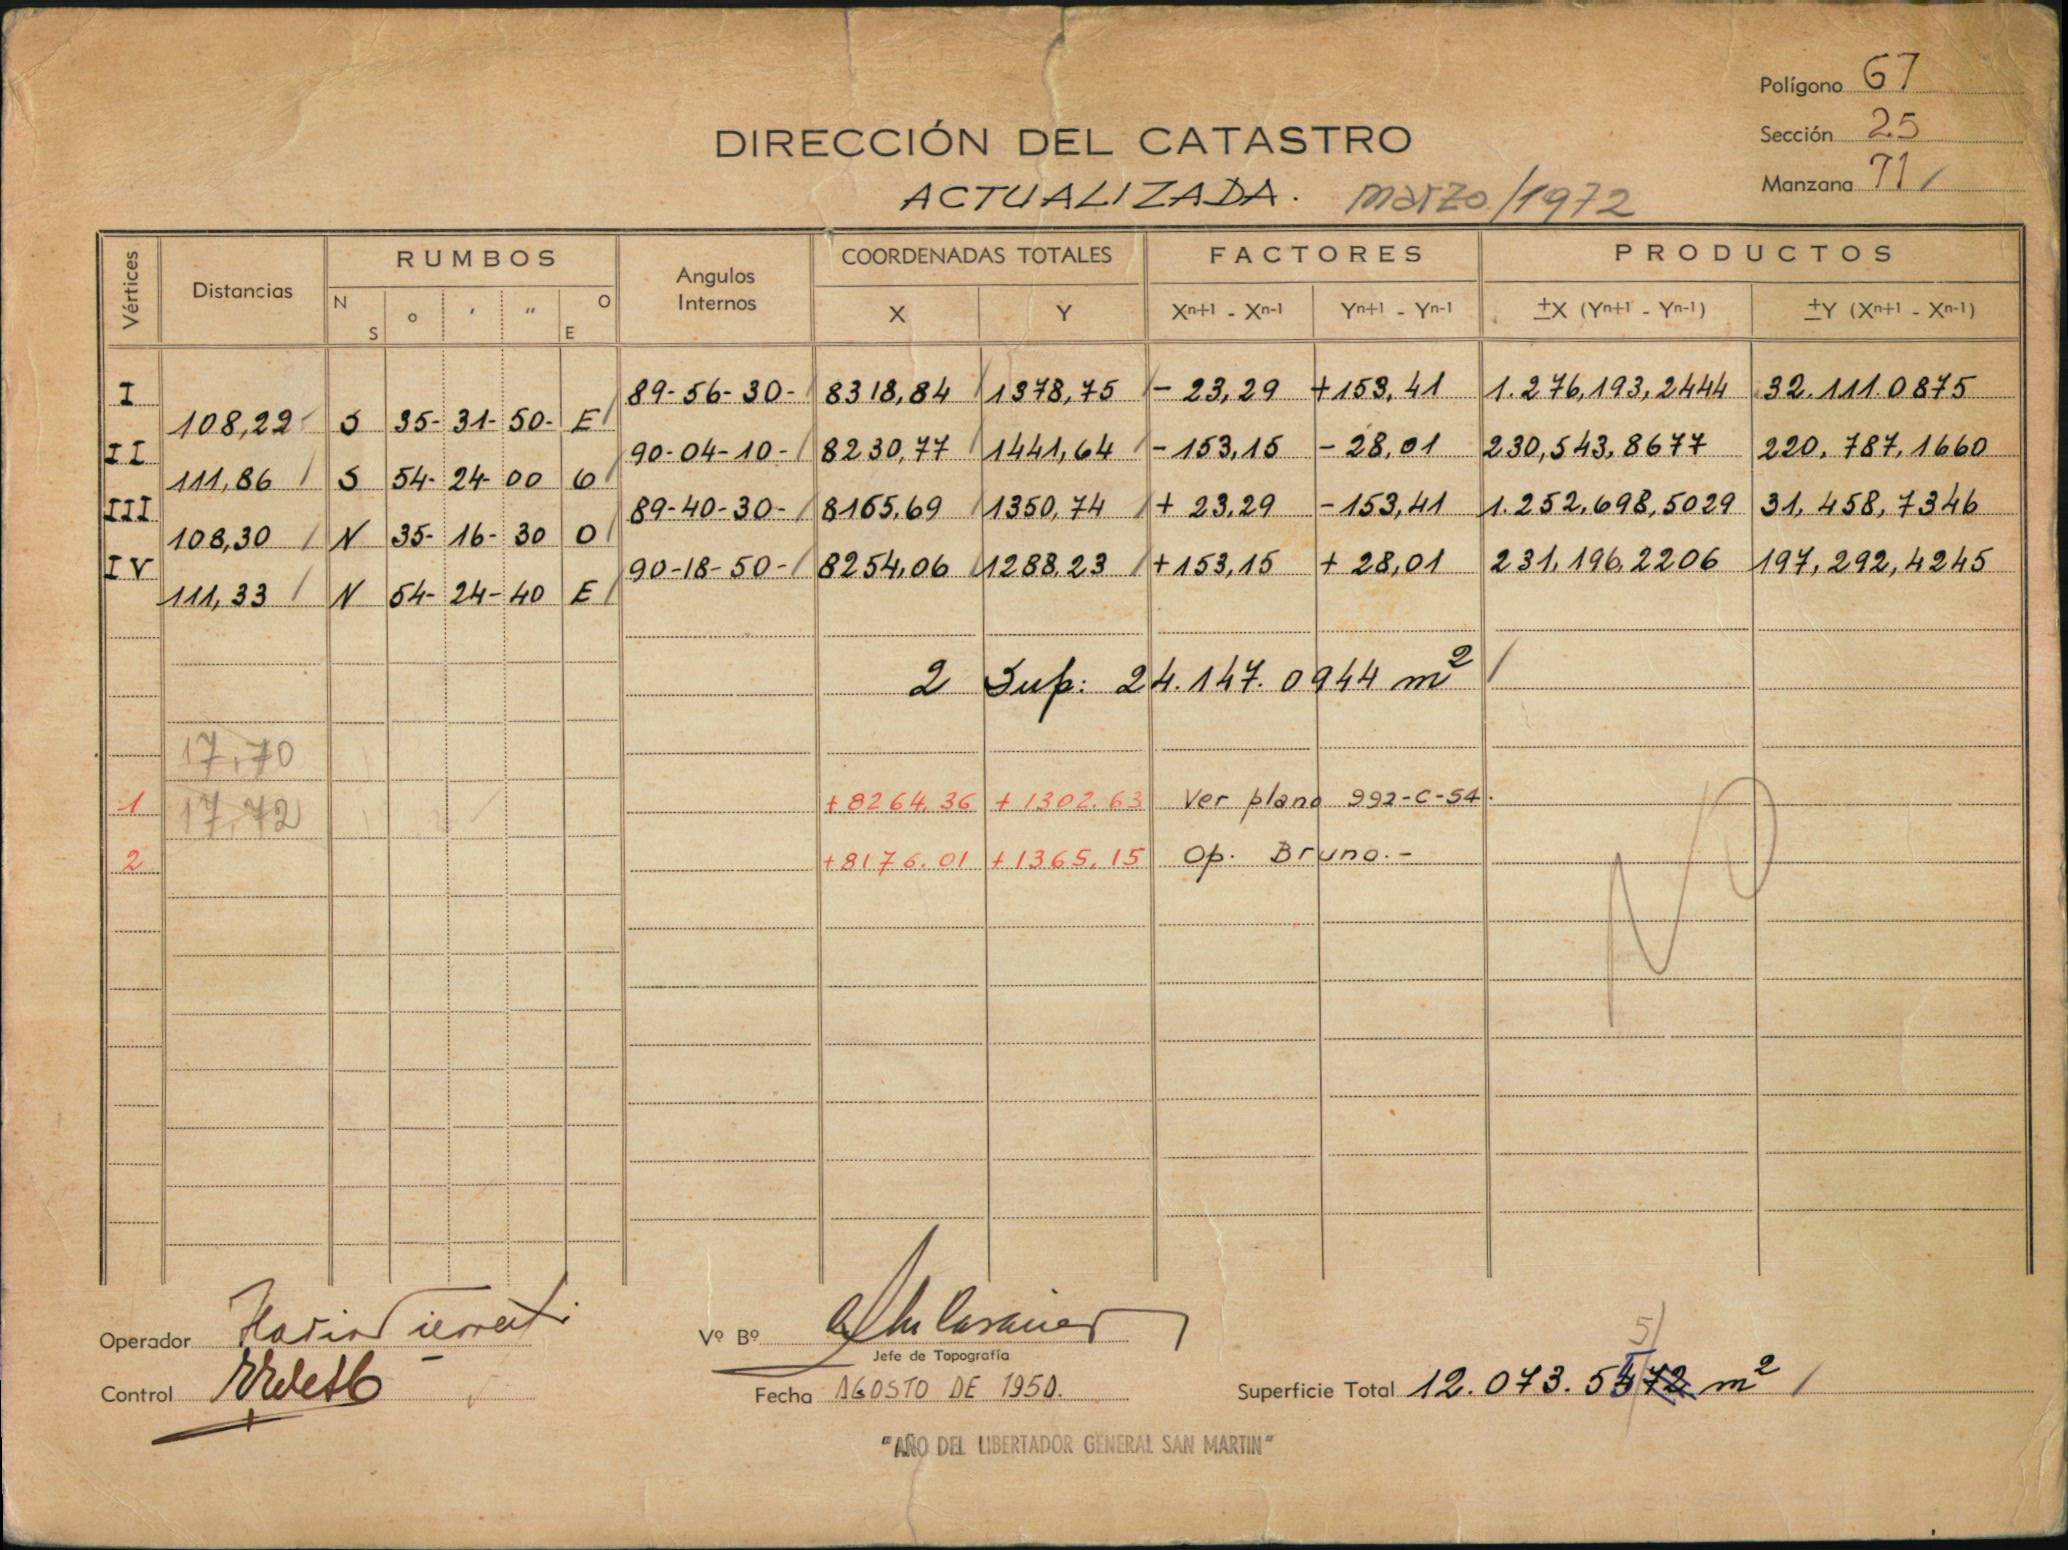 Polígono 67
Sección 25
Manzana 71 /
DIRECCIÓN DEL CATASTRO
ACTUALIZADA. marzo/1972
Vértices Distancias RUMBOS Angulos Internos COORDENADAS TOTALES FACTORES PRODUCTOS
N S o ' " O E X Y Xn+1 - Xn-1 Yn+1 - Yn-1 ±X (Yn+1 - Yn-1) ±Y (Xn+1 - Xn-1)
I 89-56-30- 8318,84 1378,75 - 23,29 +153,41 1.276,193,2444 32.111.0875
108,22 S 35- 31- 50- E
II 90-04-10- 8230,77 1441,64 -153,15 - 28,01 230,543,8677 220.787,1660
111,86 S 54- 24- 00 O
III 89-40-30- 8165,69 1350,74 + 23,29 -153,41 1.252,698,5029 31,458,7346
108,30 N 35- 16- 30 O
IV 90-18-50- 8254,06 1288,23 +153,15 + 28,01 231,196,2206 197,292,4245
111,33 N 54- 24- 40 E
2 Sup: 24.147.0944 m²
17,70
1 17,72 +8264.36 +1302.63 Ver plano 992-C-54.
2 +8176.01 +1365.15 Op. Bruno.-
NO
Operador
Control
Vº Bº
Jefe de Topografía
Fecha AGOSTO DE 1950.
Superficie Total 12.073.5 m²
"AÑO DEL LIBERTADOR GENERAL SAN MARTIN"